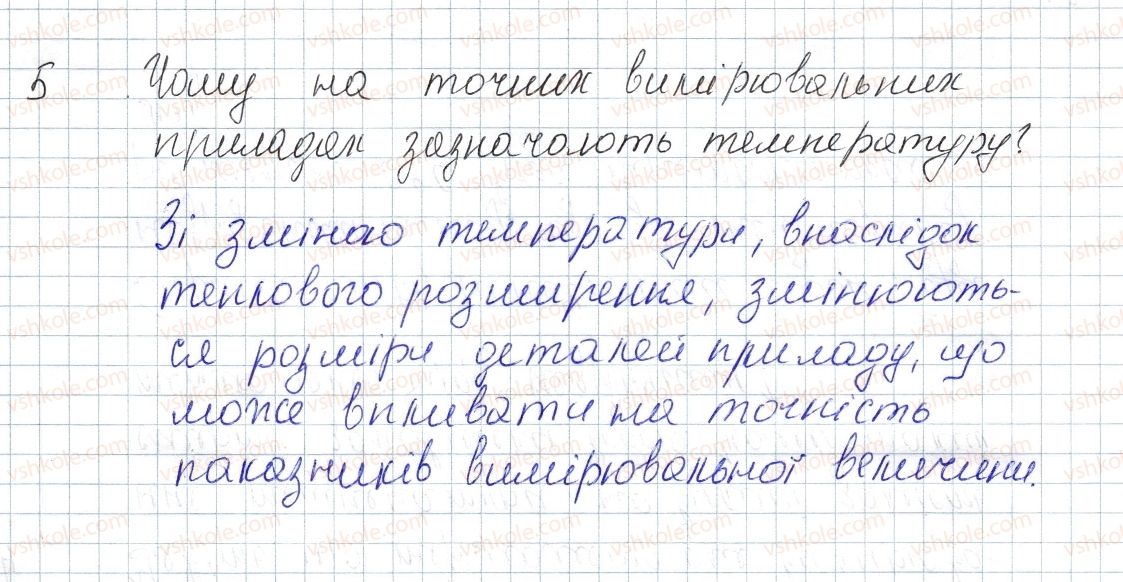 5 Чому на точних вимірювальних
приладах зазначають температуру?
Зі зміною температури, внаслідок
теплового розширення, змінюють-
ся розміри деталей приладу, що
може впливати на точність
показників вимірювальної величини.